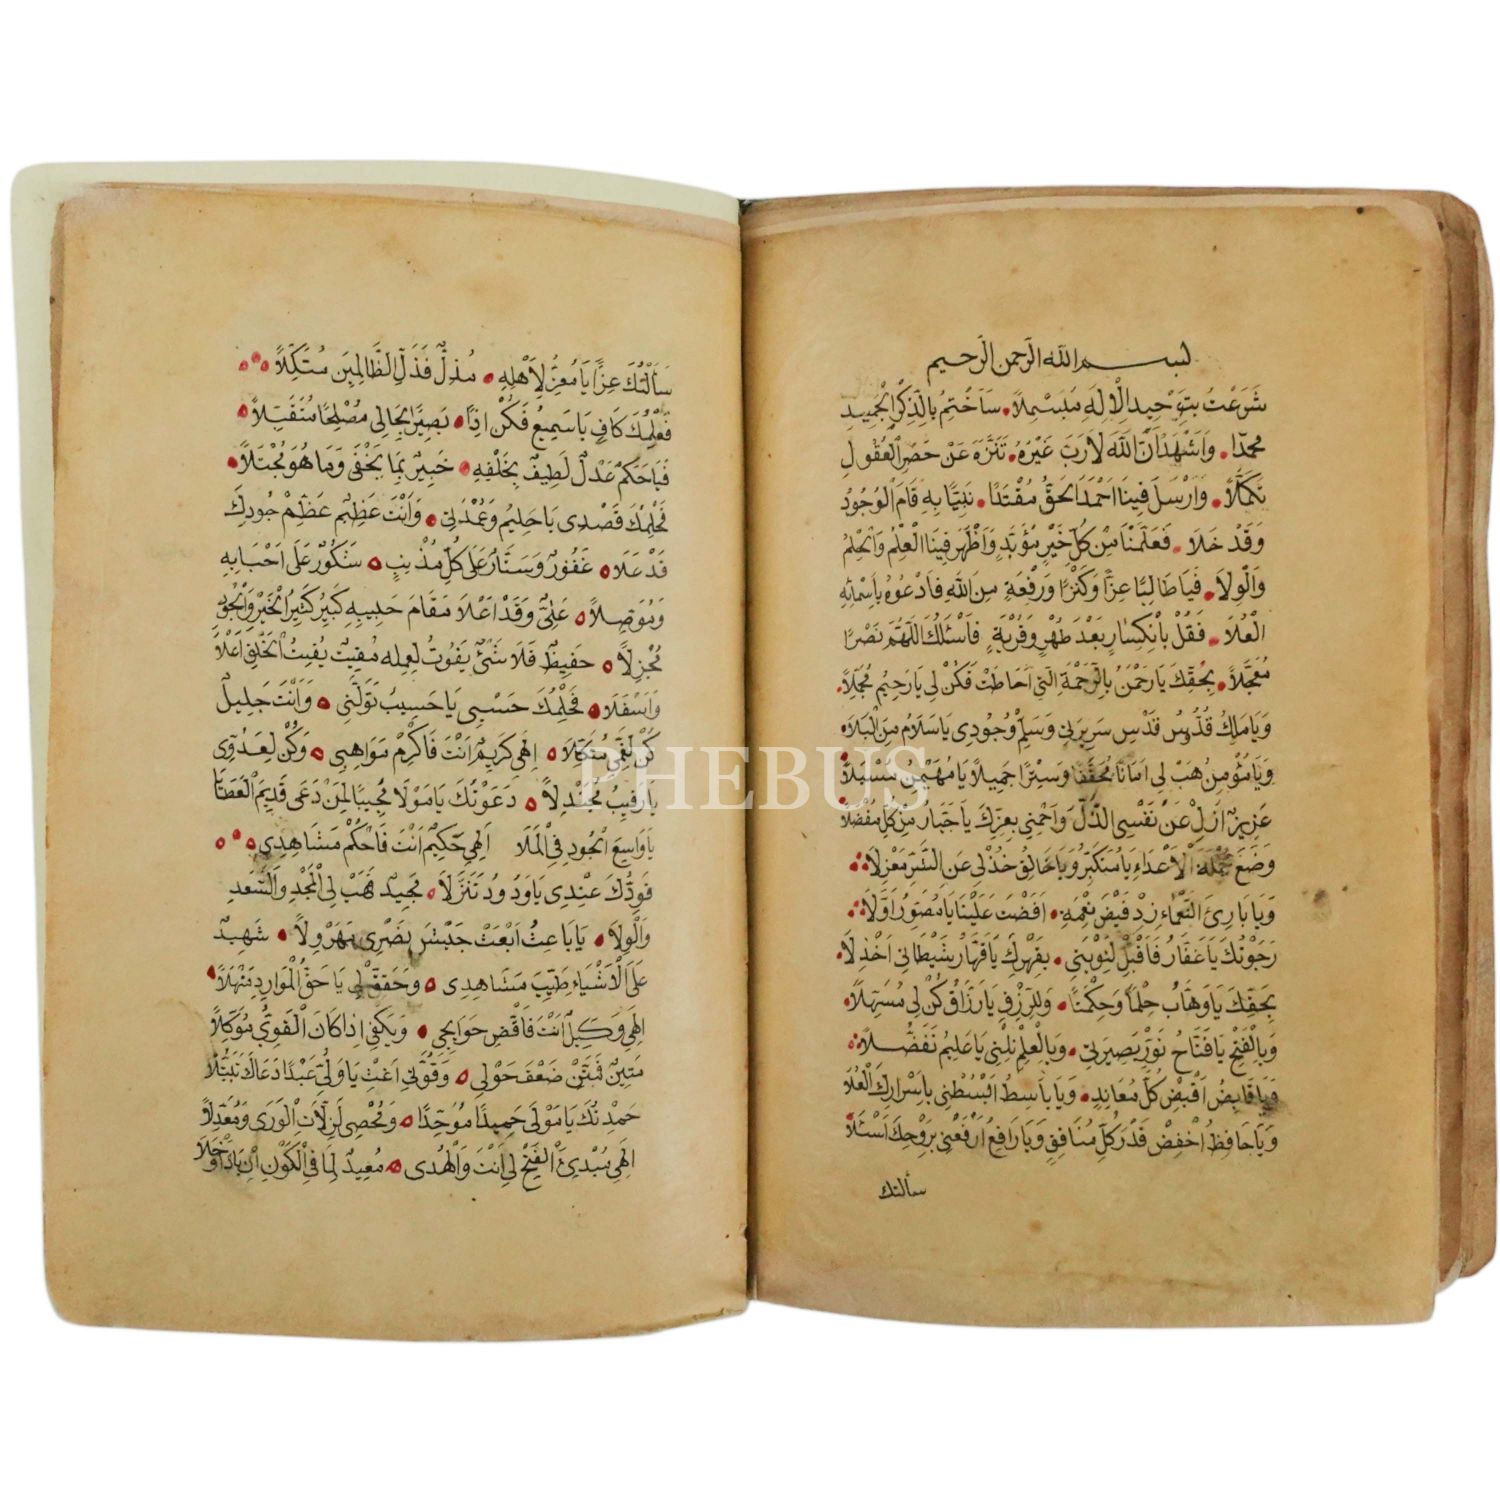 بسم الله الرحمن الرحيم
شَرَعْتُ بِتَوْحِيدِ الْاِلٰهِ مُبَسْمِلاً سَاَخْتِمُ بِالذِّكْرِ الْجَمِيدِ
مُحَمَّدًا وَاَشْهَدُ اَنَّ اللّٰهَ لَا رَبَّ غَيْرُهُ تَنَزَّهَ عَنْ حَصْرِ الْعُقُولِ
تَكَمُّلاً وَاَرْسَلَ فِينَا اَحْمَدَ الْحَقِّ مُقْتَدًا نَبِيًّا بِهِ قَامَ الْوُجُودُ
وَقَدْ خَلَا فَعَلَّمَنَا مِنْ كُلِّ خَيْرٍ مُؤَبَّدٍ وَاَظْهَرَ فِينَا الْعِلْمُ وَالْحِلْمُ
وَالْوِلَا فَيَا طَالِبًا عِزًّا وَكَنْزًا وَرِفْعَةً مِنَ اللّٰهِ فَادْعُوهُ بِاَسْمَائِهِ
الْعُلَا فَقُلْ بِانْكِسَارٍ بَعْدَ طُهْرٍ وَقُرْبَةٍ فَاَسْئَلُكَ اللّٰهُمَّ نَصْرًا
مُعَجَّلاً بِحَقِّكَ يَا رَحْمٰنُ بِالرَّحْمَةِ الَّتِي اَحَاطَتْ فَكُنْ لِي يَا رَحِيمُ مُجَمِّلاً
وَيَا مَلِكُ قُدُّوسُ قَدِّسْ سَرِيرَتِي وَسَلِّمْ وُجُودِي يَا سَلَامُ مِنَ الْبَلَا
وَيَا مُؤْمِنُ هَبْ لِي اَمَانًا مُحَقَّقًا وَسِتْرًا جَمِيلاً يَا مُهَيْمِنُ مُسْبَلاً
عَزِيزُ اَزِلْ عَنْ نَفْسِي الذُّلَّ وَاحْمِنِي بِعِزِّكَ يَا جَبَّارُ مِنْ كُلِّ مُعْضِلاً
وَضَعْ جُمْلَةَ الْاَعْدَاءِ يَا مُتَكَبِّرُ وَيَا خَالِقُ خُذْ لِي عَنِ الشَّرِّ مَعْزِلاً
وَيَا بَارِئَ النَّعْمَاءِ زِدْ فَيْضَ نِعْمَةٍ اَفَضْتَ عَلَيْنَا يَا مُصَوِّرُ اَوَّلاً
رَجَوْتُكَ يَا غَفَّارُ فَاقْبَلْ لِتَوْبَتِي بِقَهْرِكَ يَا قَهَّارُ شَيْطَانِي اَخْذِلَا
بِحَقِّكَ يَا وَهَّابُ حِلْمًا وَحِكْمَتًا وَلِلرِّزْقِ يَا رَزَّاقُ كُنْ لِي مُسَهِّلاً
وَبِالْفَتْحِ يَا فَتَّاحُ نَوِّرْ بَصِيرَتِي وَبِالْعِلْمِ نِلْنِي يَا عَلِيمُ تَفَضُّلاً
وَيَا قَابِضُ اقْبِضْ كُلَّ مُعَانِدٍ وَيَا بَاسِطُ ابْسُطْنِي بِاَسْرَارِكَ الْعُلَا
وَيَا حَافِظُ اخْفِضْ قَدْرَ كُلِّ مُنَافِقٍ وَيَا رَافِعُ ارْفَعْنِي بِرَوْحِكَ اَسْئَلاً
سألتك
سَاَلْتُكَ عِزًّا يَا مُعِزُّ لِاَهْلِهِ مُذِلُّ فَذَلِّ الظَّالِمِينَ مُتَكِّلاً
فَعِلْمُكَ كَافٍ يَا سَمِيعُ فَكُنْ اِذًا بَصِيرًا بِحَالِي مُصْلِحًا مُتَقَبِّلاً
فَيَا حَكَمٌ عَدْلٌ لَطِيفٌ بِخَلْقِهِ خَبِيرٌ بِمَا يَخْفَى وَمَا هُوَ مُجْتَلاً
فَحِلْمُكَ قَصْدِي يَا حَلِيمُ وَعُمْدَتِي وَاَنْتَ عَظِيمُ عُظْمُ جُودِكَ
قَدْ عَلَا غَفُورٌ وَسَتَّارٌ عَلَى كُلِّ مُذْنِبٍ شَكُورٌ عَلَى اَحْبَابِهِ
وَمُوَصِّلاً عَلِيٌّ وَقَدْ اَعْلَا مَقَامَ حَبِيبِهِ كَبِيرٌ كَثِيرُ الْخَيْرِ وَالْجُودِ
مُجْزِلاً حَفِيظٌ فَلَا شَئٌ يَفُوتُ لِعِلْمِهِ مُقِيتٌ يُقِيتُ الْخَلْقَ اَعْلَا
وَاَسْفَلَا فَحِلْمُكَ حَسْبِي يَا حَسِيبُ تَوَلَّنِي وَاَنْتَ جَلِيلٌ
كُنْ لِغَمِّي مُنَكِّلاً اِلٰهِي كَرِيمٌ اَنْتَ فَاَكْرِمْ مَوَاهِبِي وَكُنْ لِعَدُوِّي
يَا رَقِيبُ مُجَنْدِلاً دَعَوْتُكَ يَا مَوْلَا مُجِيبًا لِمَنْ دَعَى قَدِيمَ الْعَطَايَا
يَا وَاسِعَ الْجُودِ فِي الْمَلَا اِلٰهِي حَكِيمٌ اَنْتَ فَاحْكُمْ مَشَاهِدِي
فَوُدُّكَ عِنْدِي يَا وَدُودُ تَنَزَّلَا مَجِيدٌ فَهَبْ لِي الْمَجْدَ وَالسَّعْدِ
وَالْوِلَا يَا بَاعِثُ ابْعَثْ جَيْشَ نَصْرِي مُهَرْوِلاً شَهِيدٌ
عَلَى الْاَشْيَاءِ طَيِّبْ مَشَاهِدِي وَحَقِّقْ لِي يَا حَقُّ الْمَوَارِدِ مَنْهَلاً
اِلٰهِي وَكِيلٌ اَنْتَ فَاقْضِ حَوَايِجِي وَيَكْفِي اِذَا كَانَ الْقَوِيُّ مُوَكَّلاً
مَتِينٌ فَمَتِّنْ ضَعْفَ حَوْلِي وَقُوَّتِي اَغِثْ يَا وَلِيُّ عَبْدًا دَعَاكَ تَبَتُّلاً
حَمِدْتُكَ يَا مَوْلَى حَمِيدًا مُوَحِّدًا وَمُحْصِي لِزَلَّاتِ الْوَرَى وَمُعَدِّلاً
اِلٰهِي مُبْدِئَ الْفَتْحِ لِي اَنْتَ وَالْهُدَى مُعِيدٌ لِمَا فِي الْكَوْنِ اِنْ بَادَ اَوْ خَلَا
PHEBUS